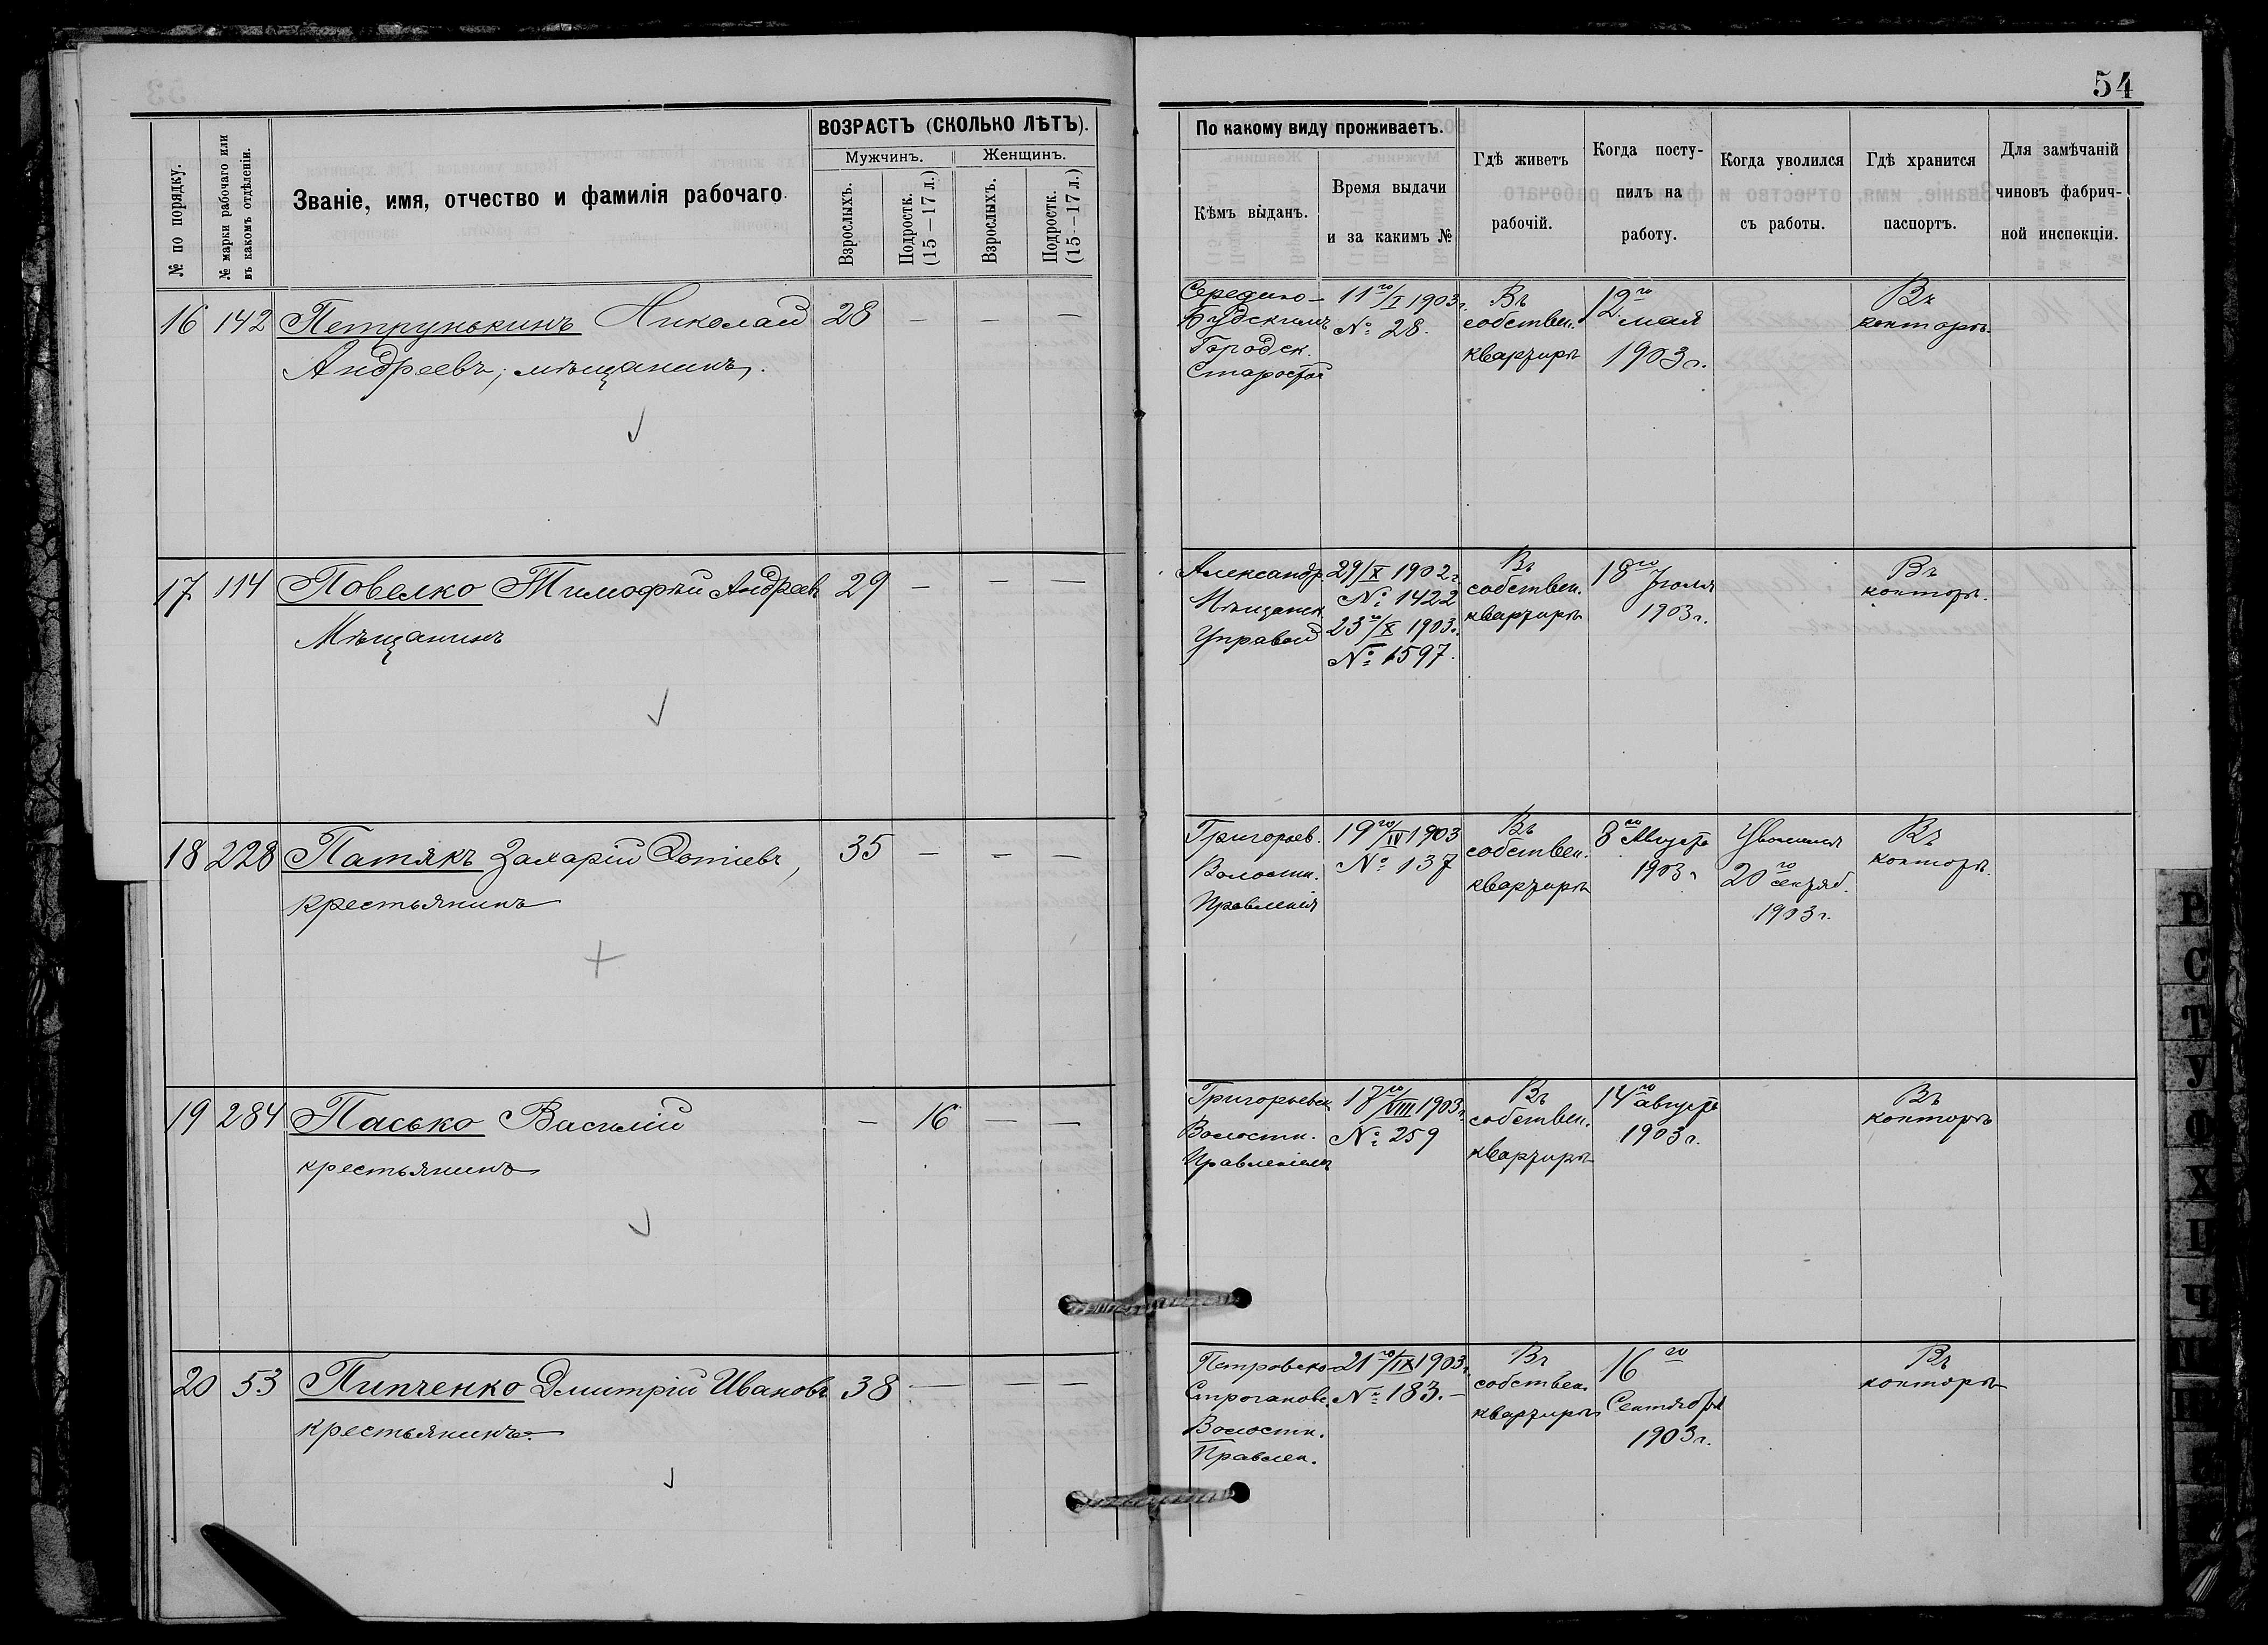 54
№ по порядку.
№ марки рабочаго или
въ какомъ отдѣленіи.
Званіе, имя, отчество и фамилія рабочаго.
ВОЗРАСТЪ (СКОЛЬКО ЛѢТЪ).
Мужчинъ.
Женщинъ.
Взрослыхъ.
Подростк.
(15—17 л.)
Взрослыхъ.
Подростк.
(15—17 л.)
По какому виду проживаетъ.
Кѣмъ выданъ.
Время выдачи
и за какимъ №
Гдѣ живетъ
рабочій.
Когда посту-
пилъ на
работу.
Когда уволился
съ работы.
Гдѣ хранится
паспортъ.
Для замѣчаній
чиновъ фабрич-
ной инспекціи.
16 142 Петрунькинъ Николай 28 — — —
Андреевъ, мѣщанинъ.
Середино-
Будскимъ
Городск.
Старостой
11го/I 1903г.
№ 28.
Въ
собствен.
квартирѣ
12го
мая
1903 г.
Въ
конторѣ.
17 114 Повелко Тимофѣй Андреевъ 29 — — —
Мѣщанинъ
Александр.
Мѣщанск.
Управой
29/X 1902 г.
№ 1422
23го/X 1903 г.
№ 1597.
Въ
собствен.
квартирѣ
18го
Іюля
1903 г.
Въ
конторѣ.
18 228 Патякъ Захарій Фотіевъ, 35 — — —
крестьянинъ
Григорьев.
Волостн.
Правленія
19го/IV 1903
№ 137
Въ
собствен.
квартирѣ
8го Августа
1903 г
Уволился
20го сентяб.
1903 г.
Въ
конторѣ.
19 284 Пасько Василій — 16 — —
крестьянинъ
Григорьевск.
Волостн.
Правленіемъ
17го/VIII 1903 г.
№ 259
Въ
собствен.
квартирѣ
14го
августа
1903 г.
Въ
конторѣ
20 53 Пипченко Дмитрій Ивановъ 38 — — —
крестьянинъ.
Петровско-
Строгановс.
Волостн.
Правлен.
21го/IX 1903 г.
№ 183.—
Въ
собствен.
квартирѣ
16го
Сентября
1903 г.
Въ
конторѣ
Р
С
Т
У
Ф
Х
Ц
Ч